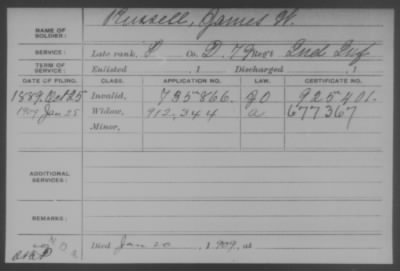 Russell, James W.
NAME OF SOLDIER:
SERVICE: Late rank, P Co. D, 79 Reg't Ind Inf
TERM OF SERVICE: Enlisted , 1 Discharged , 1
DATE OF FILING. CLASS. APPLICATION NO. LAW. CERTIFICATE NO.
1889. Oct 25 Invalid, 735866. 925401.
1909 Jan 25 Widow, 912,344 a 677367
Minor,
ADDITIONAL SERVICES:
REMARKS:
Died Jan 20 , 1909, at